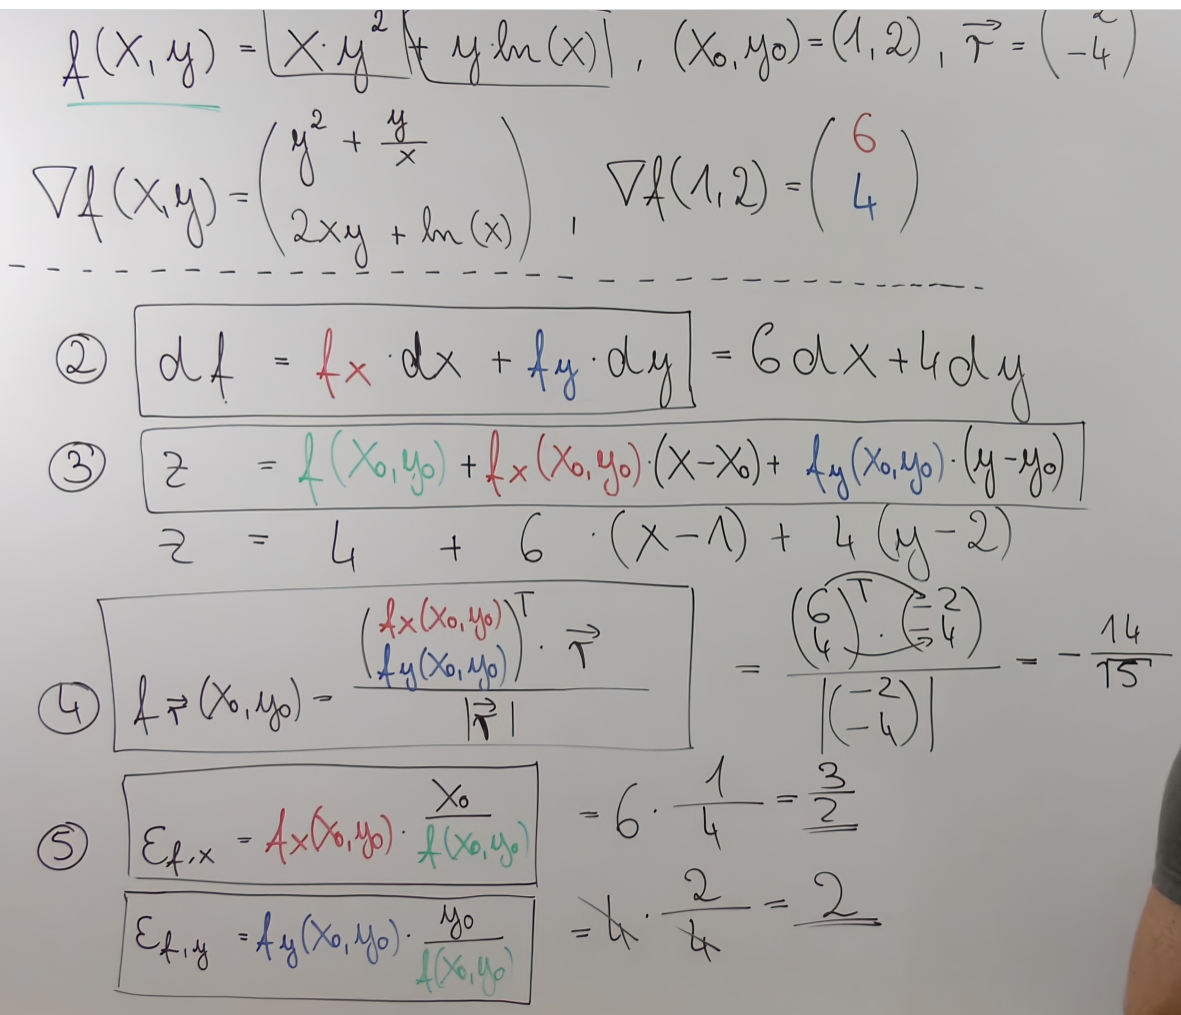 f(x,y) = x·y² + y·ln(x), (x₀,y₀)=(1,2), r⃗ = (2 -4)
∇f(x,y) = (y² + y/x
2xy + ln(x)), ∇f(1,2) = (6
4)
② df = fx·dx + fy·dy = 6dx+4dy
③ z = f(x₀,y₀) + fx(x₀,y₀)·(x-x₀) + fy(x₀,y₀)·(y-y₀)
z = 4 + 6·(x-1) + 4(y-2)
④ f r⃗ (x₀,y₀) = (fx(x₀,y₀) fy(x₀,y₀))ᵀ · r⃗ / |r⃗| = (6 4)ᵀ · (-2 -4) / |(-2 -4)| = - 14/√5
⑤ εf,x = fx(x₀,y₀) · x₀/f(x₀,y₀) = 6 · 1/4 = 3/2
εf,y = fy(x₀,y₀) · y₀/f(x₀,y₀) = 4 · 2/4 = 2